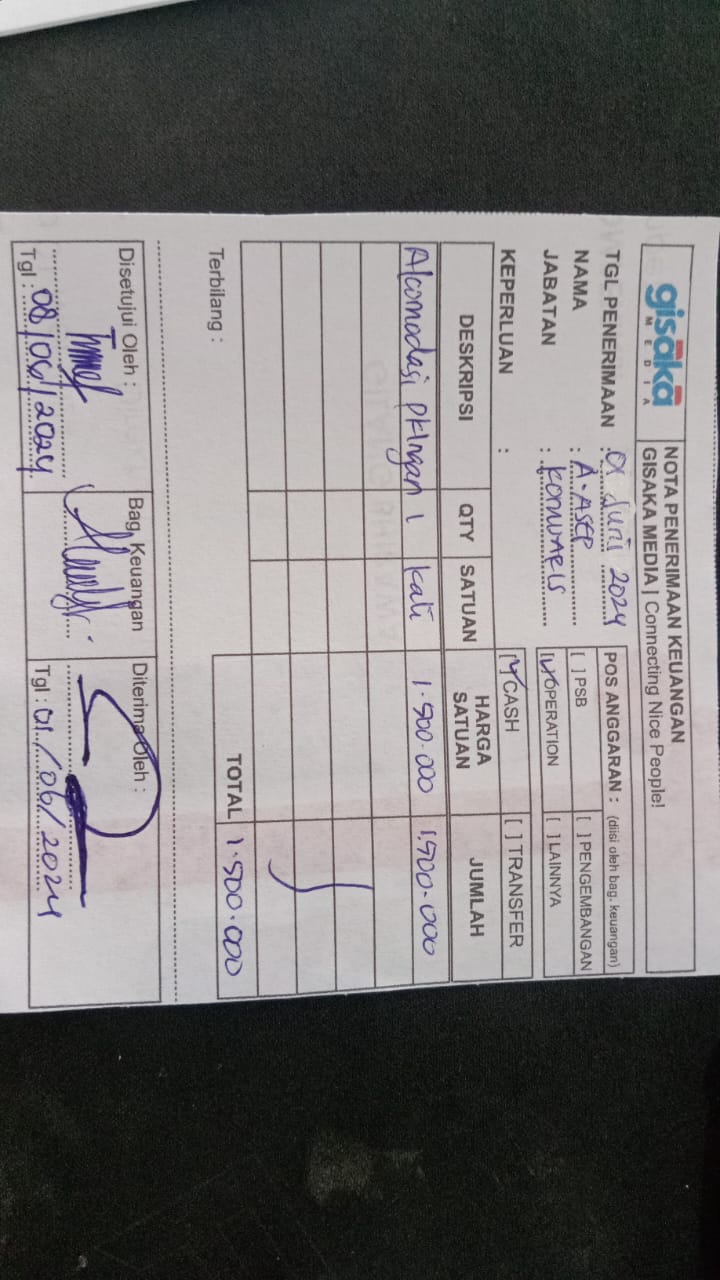 gisaka
MEDIA
NOTA PENERIMAAN KEUANGAN
GISAKA MEDIA | Connecting Nice People!
TGL PENERIMAAN : 01 Juni 2024
NAMA : A. ASEP
JABATAN : KORWARLS
KEPERLUAN :
POS ANGGARAN : (diisi oleh bag. keuangan)
[ ] PSB [ ] PENGEMBANGAN
[✓] OPERATION [ ] LAINNYA
[✓] CASH [ ] TRANSFER
DESKRIPSI QTY SATUAN HARGA SATUAN JUMLAH
Alcomodasi 1 kali 1.500.000 1.500.000
TOTAL 1.500.000
Terbilang :
Disetujui Oleh : Bag. Keuangan Diterima Oleh :
Tgl : 08/06/2024 Tgl : 01/06/2024